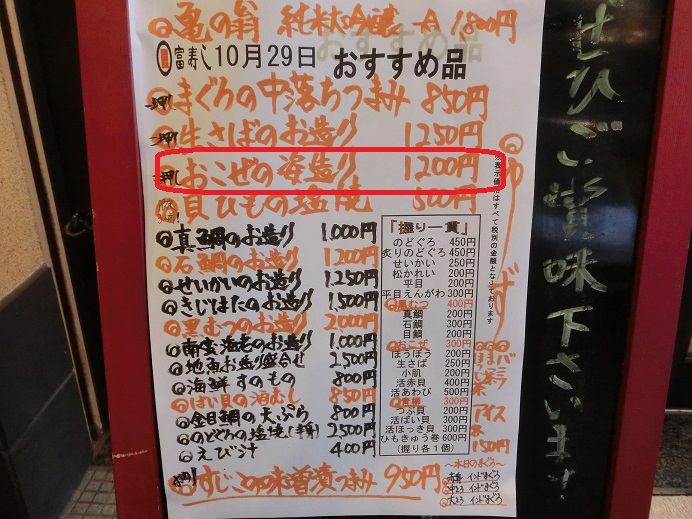 亀の翁 純米大吟醸 一合 1,800円
富寿し 10月29日 おすすめ品
一押し まぐろの中落ちつまみ 850円
一押し 生さばのお造り 1250円
一押し おこぜの姿造り 1200円
貝ひもの塩焼 500円
真鯛のお造り 1,000円
石鯛のお造り 1,200円
せいかいのお造り 1,250円
きじはたのお造り 1,500円
黒むつのお造り 2,000円
南蛮海老のお造り 1,000円
地魚お造り盛合せ 2,500円
海鮮すのもの 800円
ばい貝の酒むし 850円
金目鯛の天ぷら 800円
のどぐろの塩焼(半身) 2,500円
えび汁 400円
すじこの味噌漬つまみ 950円
「握り一貫」
のどぐろ 450円
炙りのどぐろ 450円
せいかい 250円
松かれい 200円
平目 200円
平目えんがわ 300円
黒むつ 400円
真鯛 200円
石鯛 300円
目鯛 200円
おこぜ 300円
ほうぼう 200円
生さば 250円
小肌 200円
活赤貝 400円
活あわび 500円
青柳 300円
つぶ貝 200円
活ばい貝 300円
活ほっき貝 300円
ひもきゅう巻 600円
(握り各1個)
※表示価格はすべて税別の金額となっております
アイス
150円
～本日のまぐろ～
赤身 インドまぐろ
中とろ インドまぐろ
大とろ インドまぐろ
ぜひご賞味下さいませ